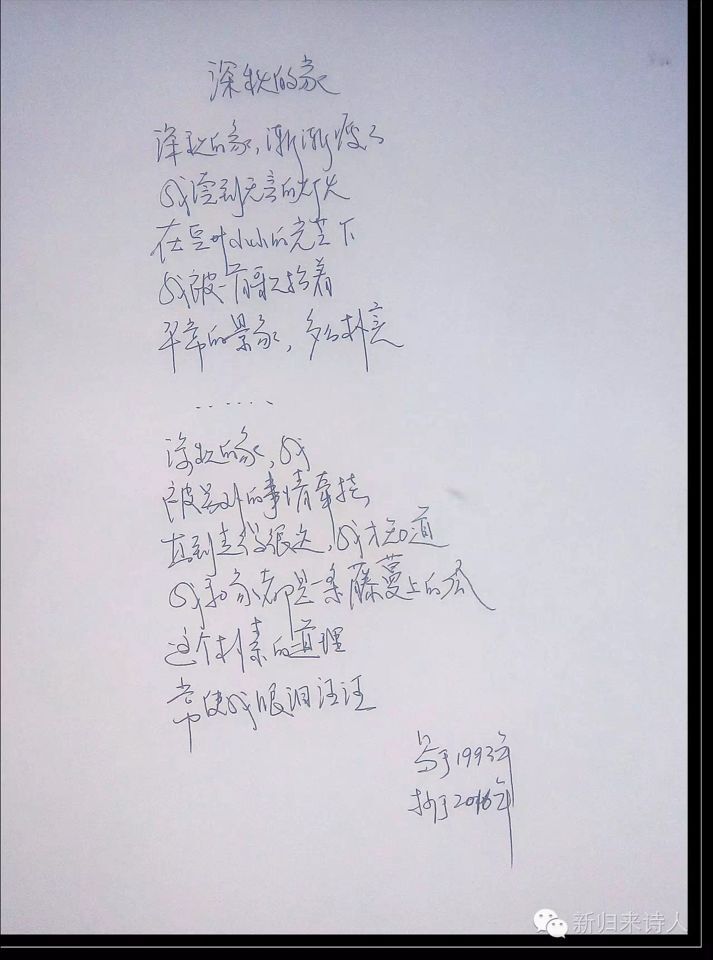 深秋的家
深秋的家，渐渐瘦了
我 到无言的
在豆 的光芒下
我被一首歌
平常的景象，多么朴实
……
深秋的家，我
被 外的事情牵挂
直到走得很久，我才知道
我和家都是一条藤蔓上的瓜
这个朴素的道理
常使我眼泪汪汪
写于1993年
抄于2016年
新归来诗人